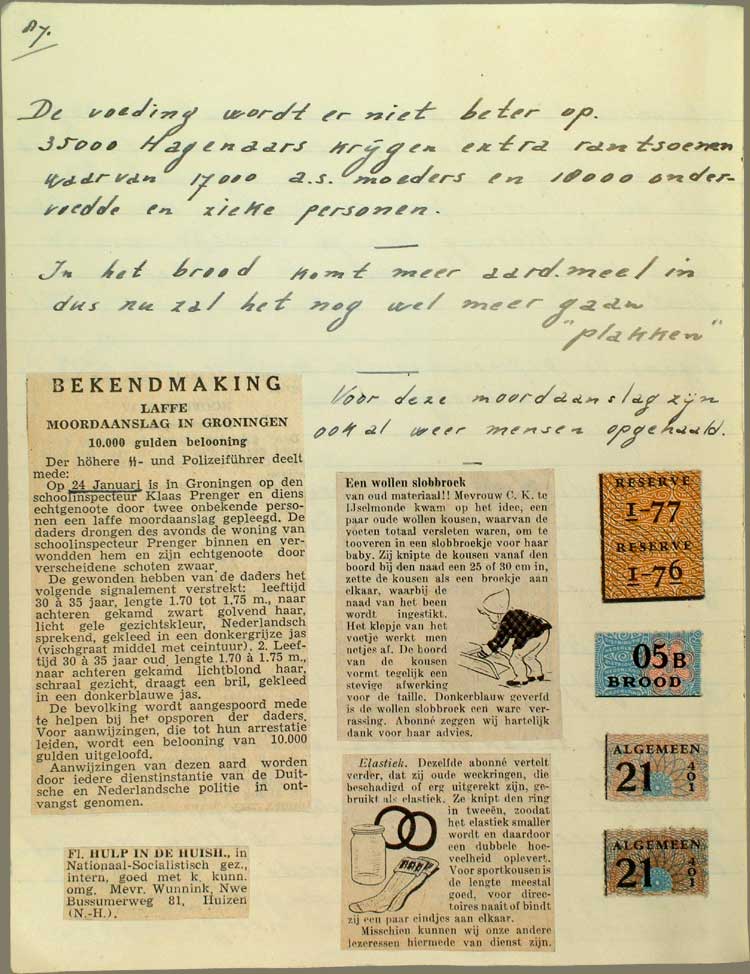 87.
De voeding wordt er niet beter op.
35000 Hagenaars krijgen extra rantsoenen
waarvan 17000 a.s. moeders en 18000 onder-
voedde en zieke personen.
In het brood komt meer aard.meel in
dus nu zal het nog wel meer gaan
"plakken"
BEKENDMAKING
LAFFE
MOORDAANSLAG IN GRONINGEN
10.000 gulden belooning
Der höhere ϟϟ- und Polizeiführer deelt
mede:
Op 24 Januari is in Groningen op den
schoolinspecteur Klaas Prenger en diens
echtgenoote door twee onbekende perso-
nen een laffe moordaanslag gepleegd. De
daders drongen des avonds de woning van
schoolinspecteur Prenger binnen en ver-
wondden hem en zijn echtgenoote door
verscheidene schoten zwaar.
De gewonden hebben van de daders het
volgende signalement verstrekt: leeftijd
30 à 35 jaar, lengte 1.70 tot 1.75 m., naar
achteren gekamd zwart golvend haar,
licht gele gezichtskleur, Nederlandsch
sprekend, gekleed in een donkergrijze jas
(vischgraat middel met ceintuur). 2. Leef-
tijd 30 à 35 jaar oud, lengte 1.70 à 1.75 m.,
naar achteren gekamd lichtblond haar,
schraal gezicht, draagt een bril, gekleed
in een donkerblauwe jas.
De bevolking wordt aangespoord mede
te helpen bij het opsporen der daders.
Voor aanwijzingen, die tot hun arrestatie
leiden, wordt een belooning van 10.000
gulden uitgeloofd.
Aanwijzingen van dezen aard worden
door iedere dienstinstantie van de Duit-
sche en Nederlandsche politie in ont-
vangst genomen.
Voor deze moordaanslag zijn
ook al weer mensen opgehaald.
Een wollen slobbroek
van oud materiaal!! Mevrouw C. K. te
IJselmonde kwam op het idee, een
paar oude wollen kousen, waarvan de
voeten totaal versleten waren, om te
tooveren in een slobbroekje voor haar
baby. Zij knipte de kousen vanaf den
boord bij den naad een 25 of 30 cm in,
zette de kousen als een broekje aan
elkaar, waarbij de
naad van het been
wordt ingestikt.
Het klepje van het
voetje werkt men
netjes af. De boord
van de kousen
vormt tegelijk een
stevige afwerking
voor de taille. Donkerblauw geverfd
is de wollen slobbroek een ware ver-
rassing. Abonné zeggen wij hartelijk
dank voor haar advies.
Elastiek. Dezelfde abonné vertelt
verder, dat zij oude weekringen, die
beschadigd of erg uitgerekt zijn, ge-
bruikt als elastiek. Ze knipt den ring
in tweeën, zoodat
het elastiek smaller
wordt en daardoor
een dubbele hoe-
veelheid oplevert.
Voor sportkousen is
de lengte meestal
goed, voor direc-
toires naait of bindt
zij een paar eindjes aan elkaar.
Misschien kunnen wij onze andere
lezeressen hiermede van dienst zijn.
RESERVE
I-77
RESERVE
I-76
05B
BROOD
ALGEMEEN
21 401
ALGEMEEN
21 401
Fl. HULP IN DE HUISH., in
Nationaal-Socialistisch gez.,
intern, goed met k. kunn.
omg. Mevr. Wunnink, Nwe
Bussumerweg 81, Huizen
(N.-H.).